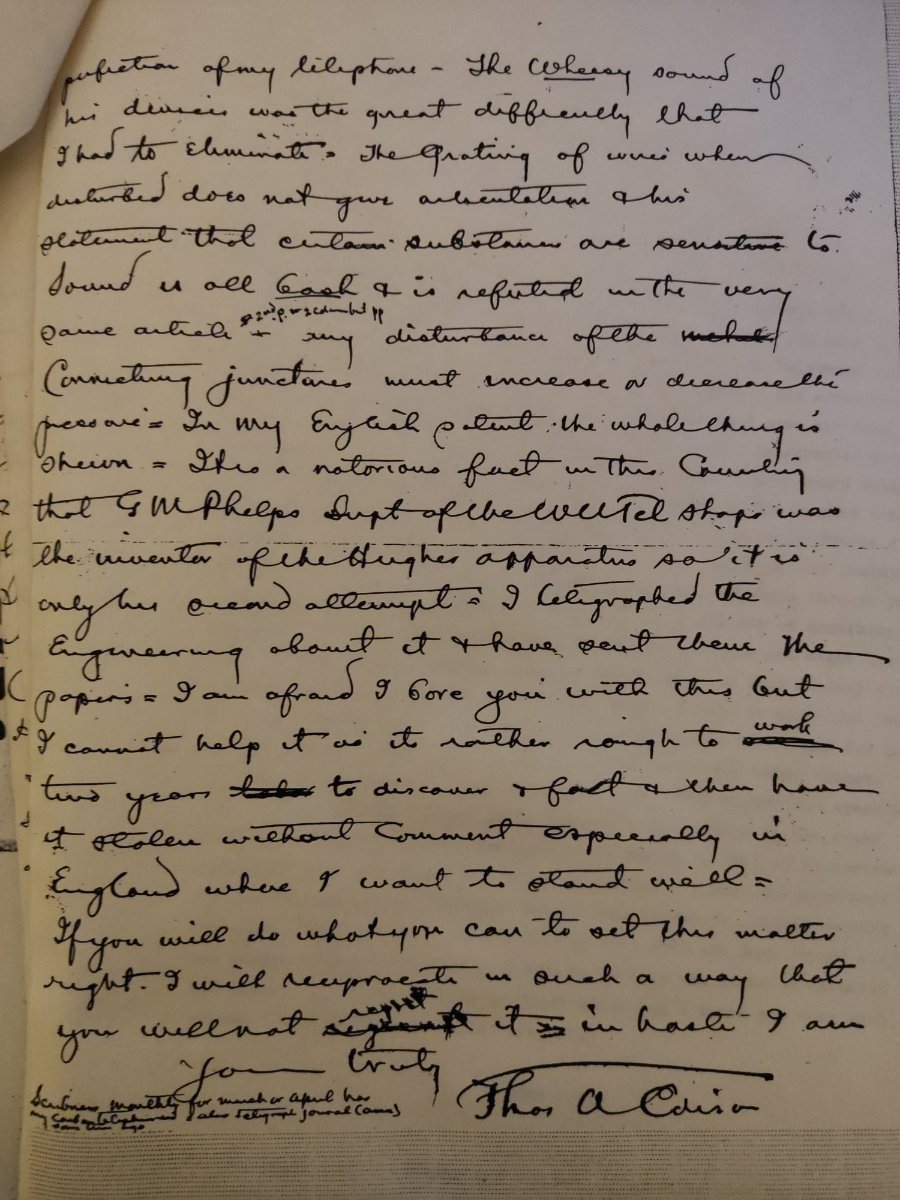 perfection of my telephone - The Wheesy sound of
his devices was the great difficulty that
I had to Eliminate = The Grating of wires when
disturbed does not give articulation & his
statement that certain substances are sensitive to
Sound is all Bosh & is refuted in the very
same article + any disturbance of the
Connecting junctures must increase or decrease the
pressure = In my English patent the whole thing is
shewn = It is a notorious fact in this Country
that G M Phelps Supt of the WU Tel shops was
the inventor of the Hughes apparatus so it is
only his second attempt = I telegraphed the
Engineering about it & have sent them the
papers = I am afraid I bore you with this but
I cannot help it as its rather rough to work
two years to discover a fact & then have
it stolen without Comment especially in
England where I want to stand well =
If you will do what you can to set this matter
right. I will reciprocate in such a way that
you will not regret it = in haste I am
Yours truly
Thos A Edison
Scribners monthly for march or april has
my & also telegraph journal